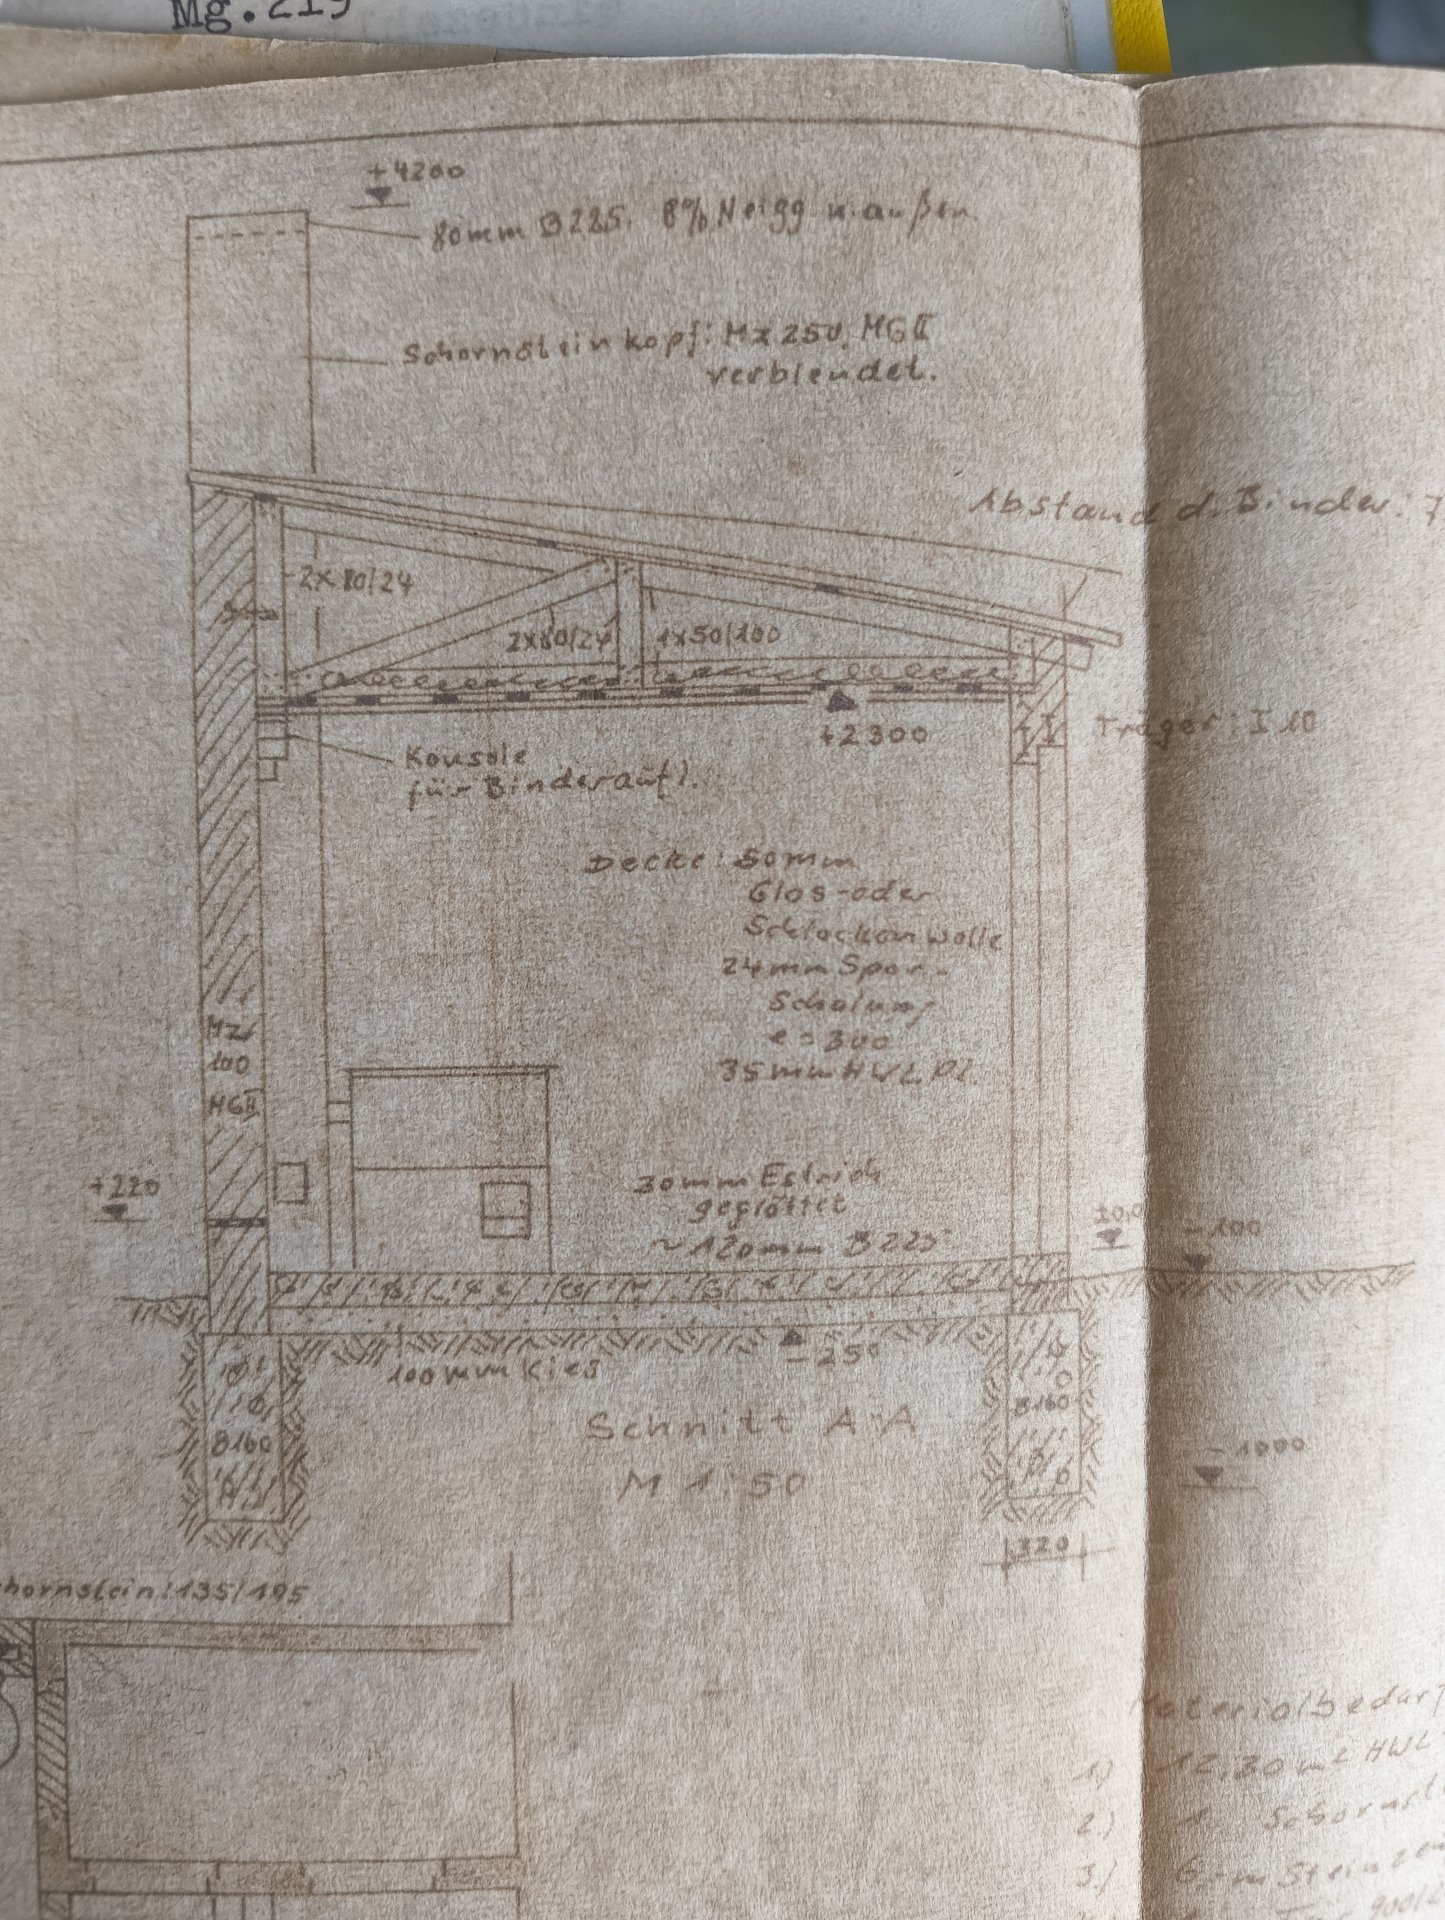 Mg.219
+4200
80mm B225. 8% Neigg n. außen
Schornsteinkopf: Mz 250, MG II
verblendet.
Abstand d. Binder:
2x80/24
2x80/24
1x50/100
+2300
Träger: I 10
Konsole
für Binderaufl.
Decke: 50mm
Glas-oder
Schlackenwolle
24mm Spar-
Schalung
e=300
35mm HWL Pl.
Mz
100
MG II
+220
30mm Estrich
geglättet
~120mm B225
±0,0
-100
-250
100mm Kies
Schnitt A-A
M 1:50
B160
B160
-1000
320
hornstein: 135/195
Materialbedarf
1.) 12,30 m² HWL
2.) 1
3.) 6,-m